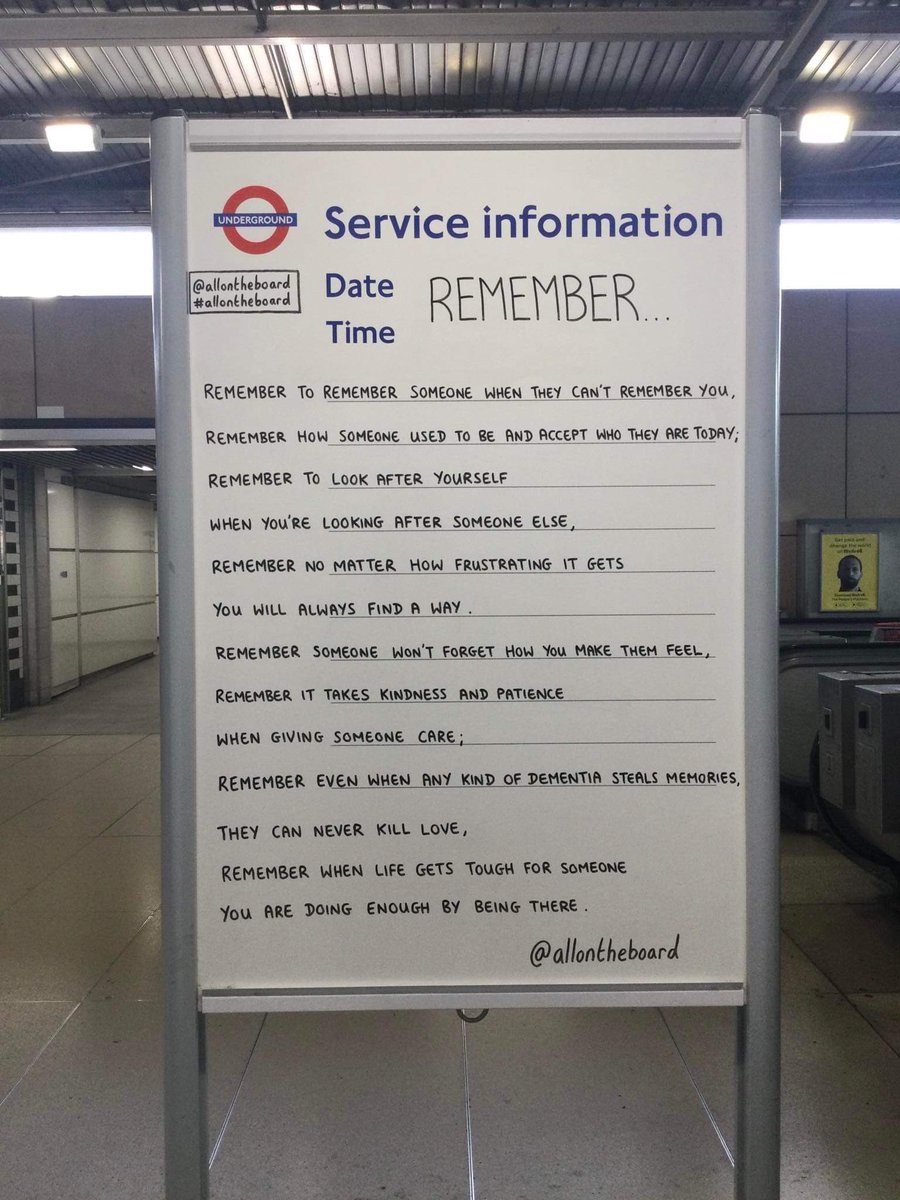 UNDERGROUND
Service information
@allontheboard
#allontheboard
Date
Time
REMEMBER...
REMEMBER TO REMEMBER SOMEONE WHEN THEY CAN'T REMEMBER YOU,
REMEMBER HOW SOMEONE USED TO BE AND ACCEPT WHO THEY ARE TODAY;
REMEMBER TO LOOK AFTER YOURSELF
WHEN YOU'RE LOOKING AFTER SOMEONE ELSE,
REMEMBER NO MATTER HOW FRUSTRATING IT GETS
YOU WILL ALWAYS FIND A WAY.
REMEMBER SOMEONE WON'T FORGET HOW YOU MAKE THEM FEEL,
REMEMBER IT TAKES KINDNESS AND PATIENCE
WHEN GIVING SOMEONE CARE;
REMEMBER EVEN WHEN ANY KIND OF DEMENTIA STEALS MEMORIES,
THEY CAN NEVER KILL LOVE,
REMEMBER WHEN LIFE GETS TOUGH FOR SOMEONE
YOU ARE DOING ENOUGH BY BEING THERE.
@allontheboard
Get paid and
change the world